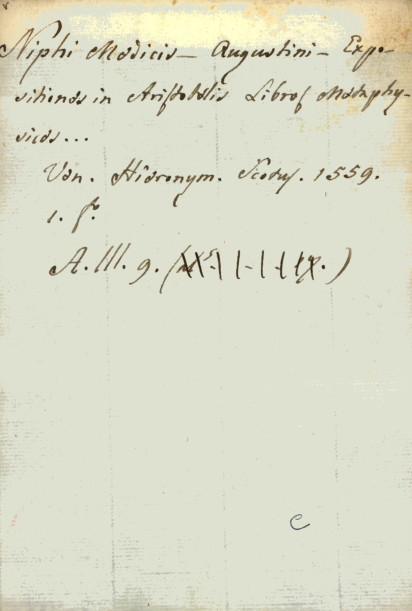 Niphi Medicis – Augustini – Expo-
sitiones in Aristotelis Libros Metaphy-
sicos...
Ven. Hieronym. Scotus. 1559.
1. fo.
A. III. 9.
e